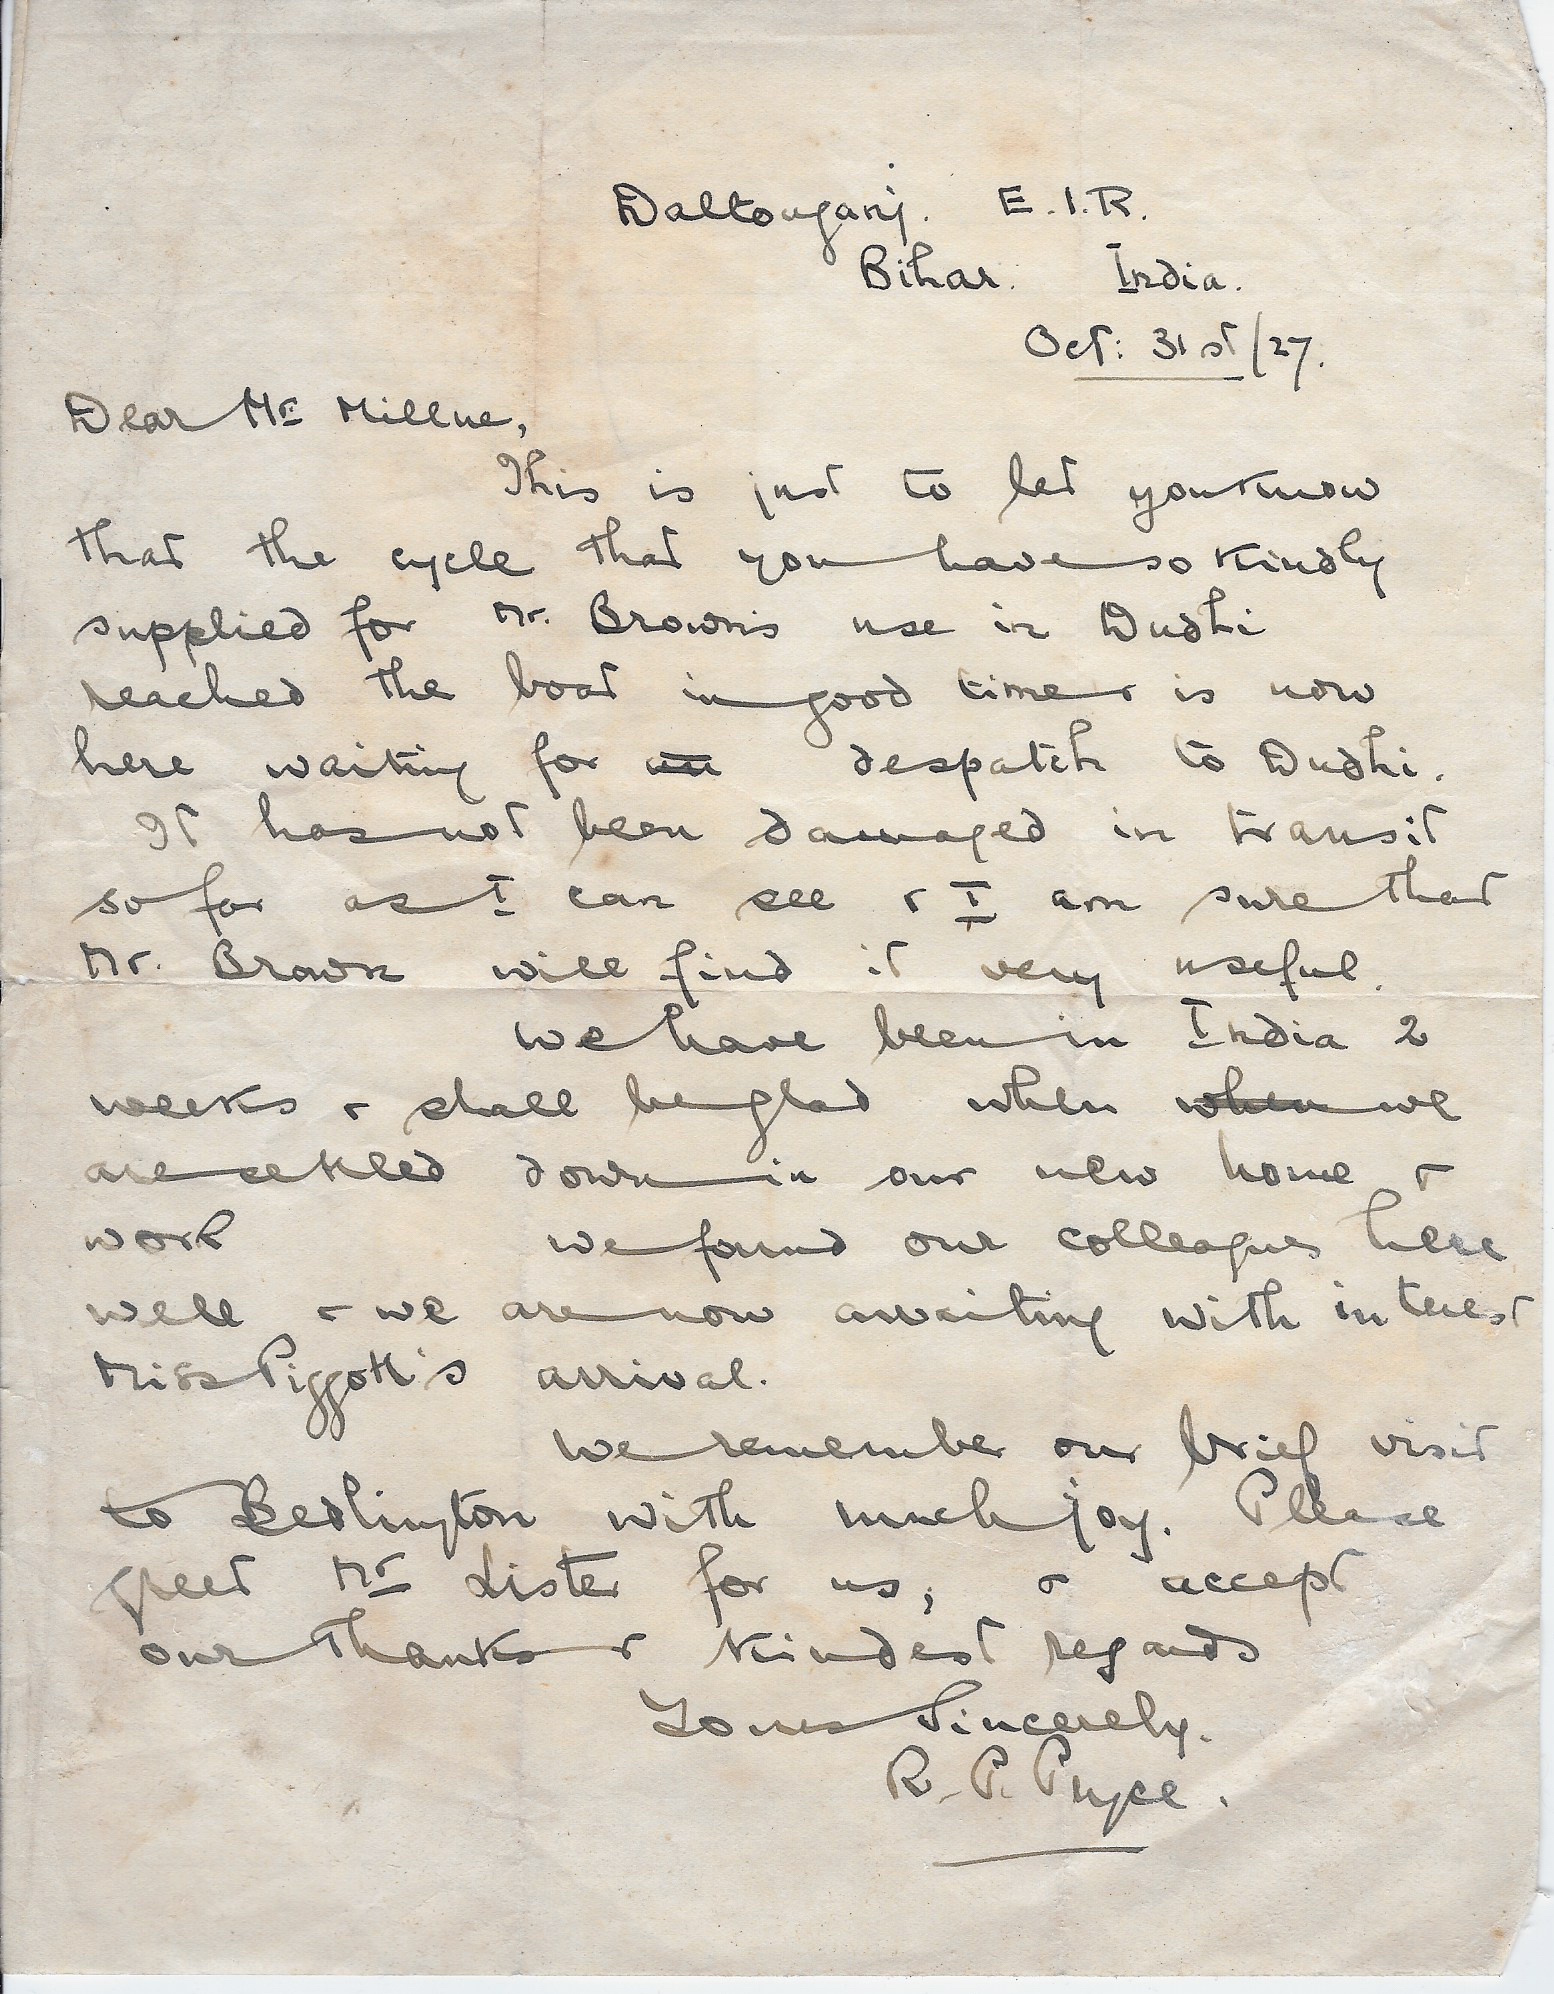 Daltonganj. E.I.R.
Bihar. India.
Oct: 31st/27.
Dear Mr Millne,
This is just to let you know
that the cycle that you have so kindly
supplied for Mr. Brown's use in Dudhi
reached the boat in good time & is now
here waiting for despatch to Dudhi.
It has not been damaged in transit
so far as I can see & I am sure that
Mr. Brown will find it very useful.
We have been in India 2
weeks & shall be glad when when we
are settled down in our new home &
work we found our colleagues here
well & we are now awaiting with interest
Miss Piggott's arrival.
We remember our brief visit
to Bedlington with much joy. Please
greet Mr Lister for us, & accept
our thanks & kindest regards
Yours Sincerely.
R. P. Pryce.